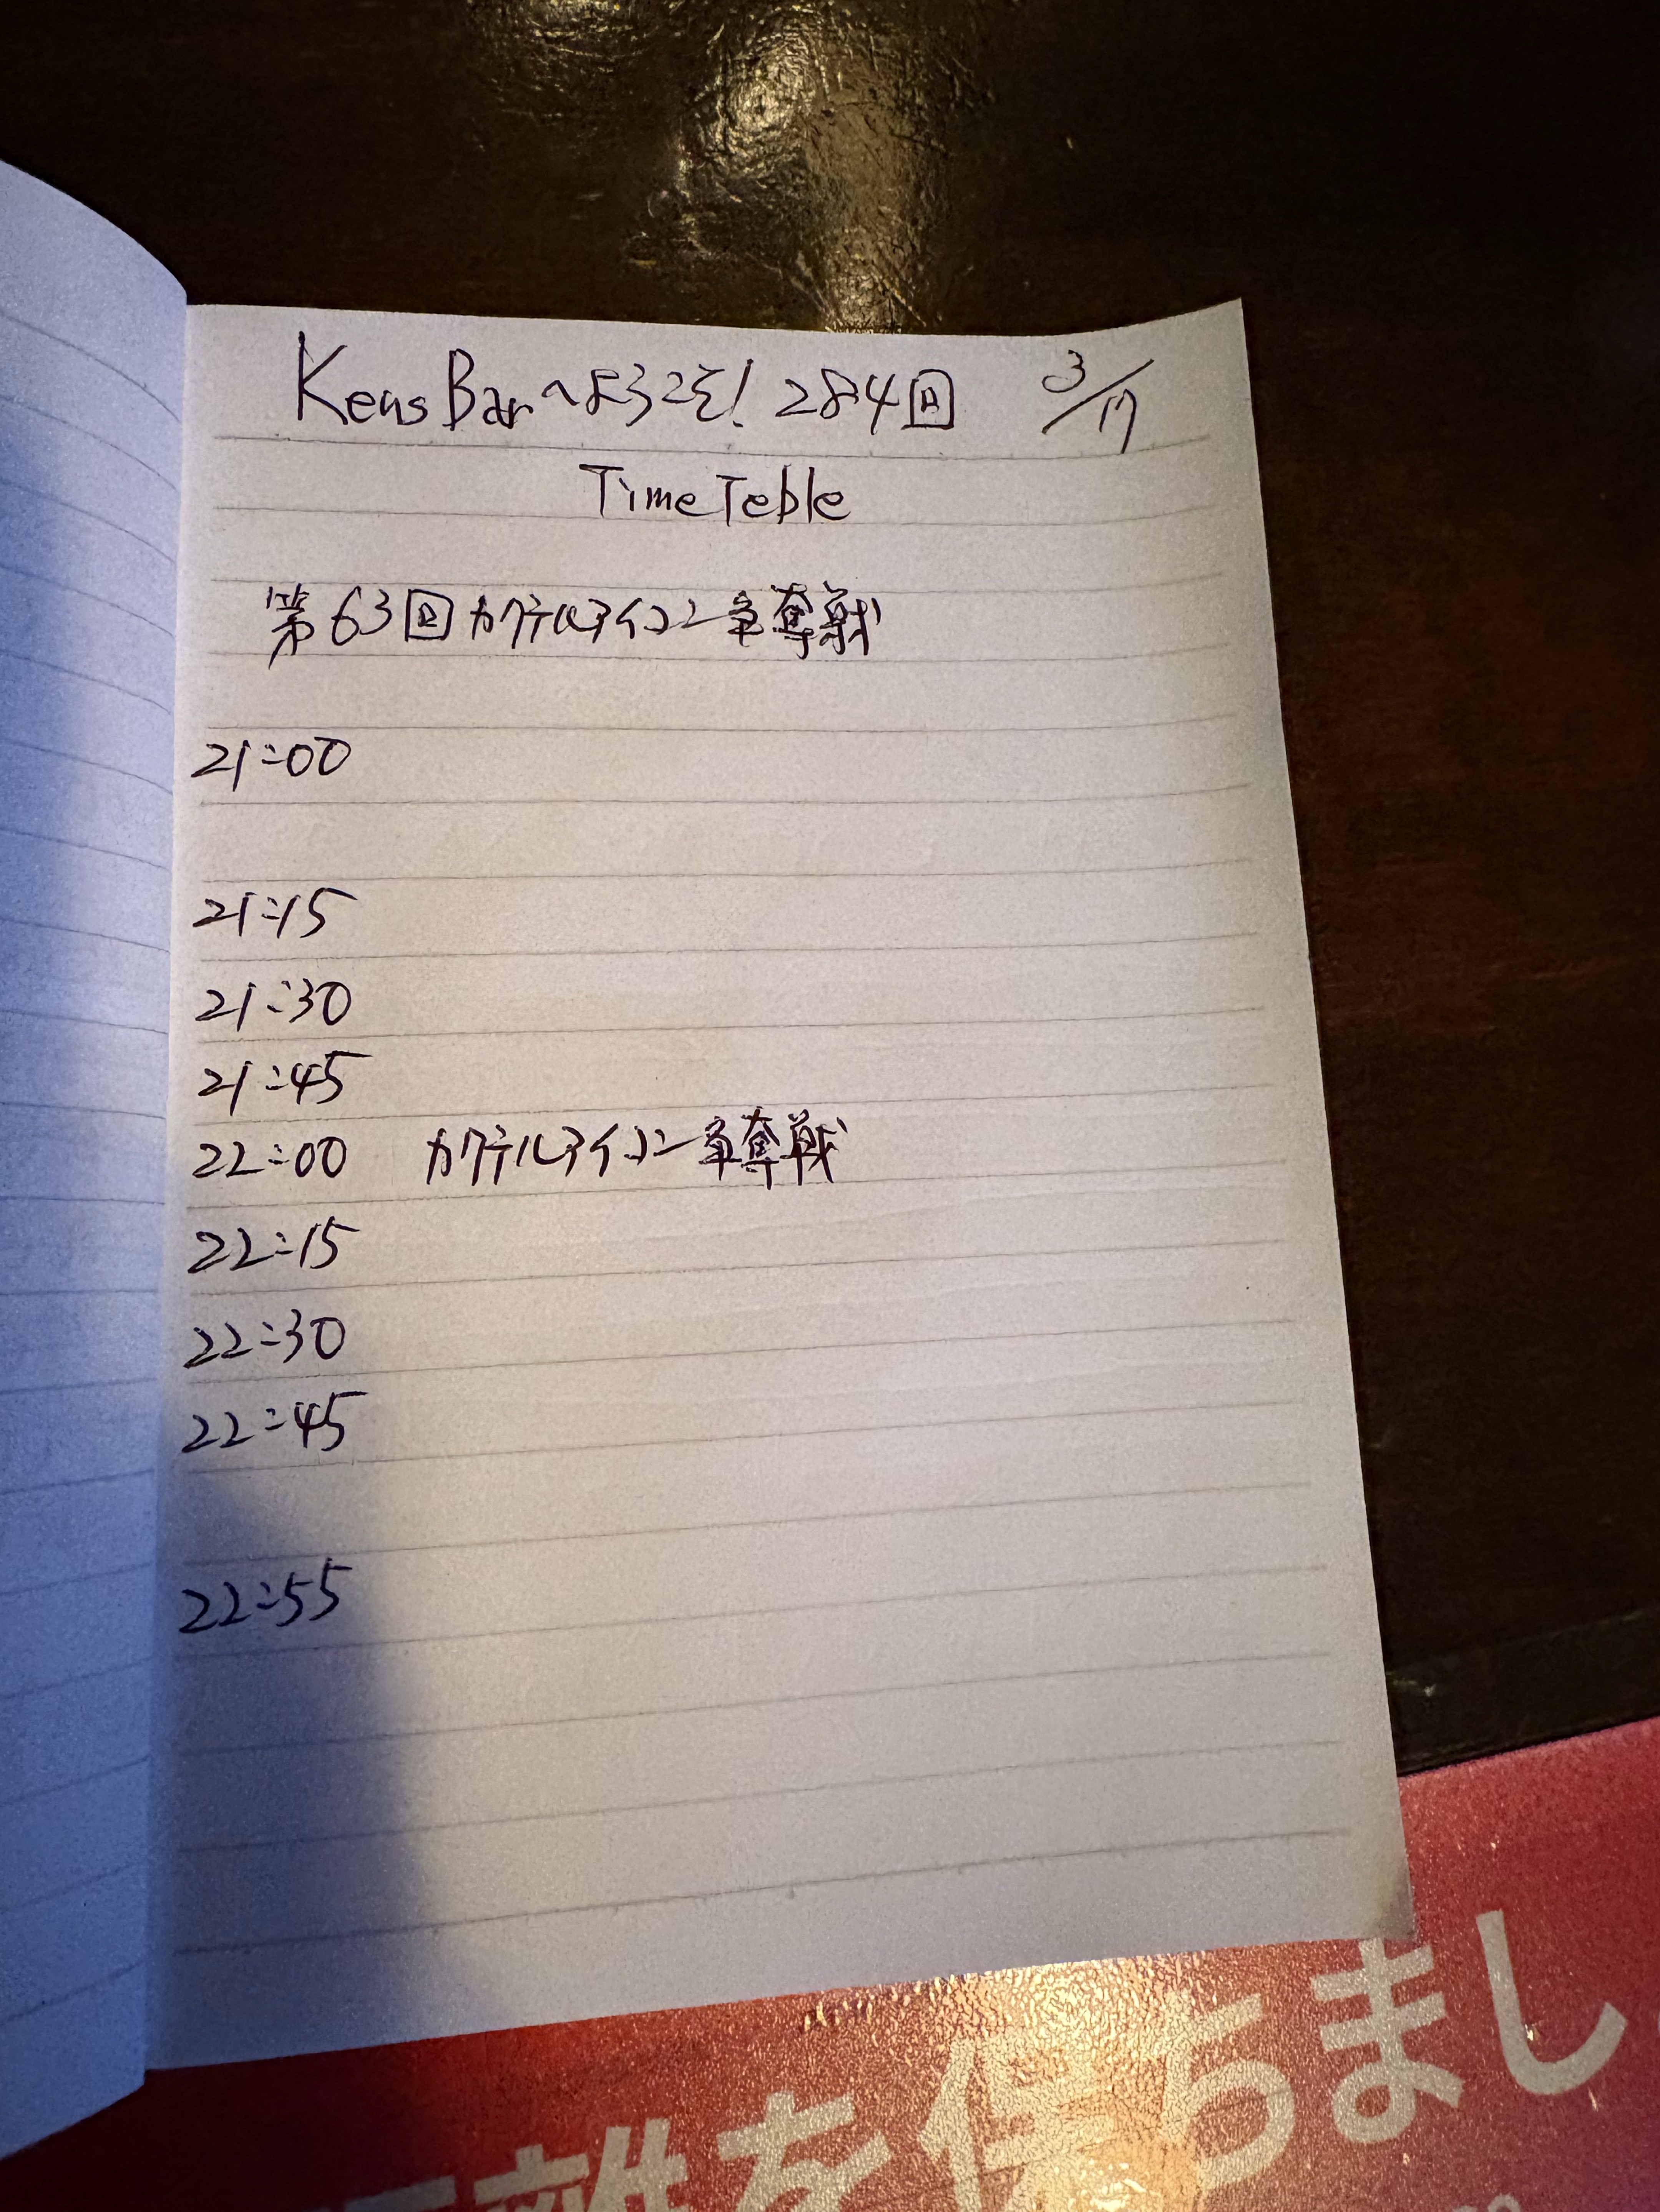 KensBarへようこそ! 284回 3/17
TimeTeble
第63回カクテルアイコン争奪戦
21:00
21:15
21:30
21:45
22:00 カクテルアイコン争奪戦
22:15
22:30
22:45
22:55
離を保ちまし